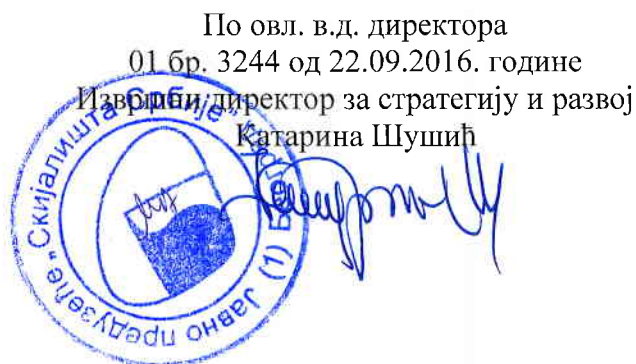 По овл. в.д. директора
01 бр. 3244 од 22.09.2016. године
Извршни директор за стратегију и развој
Катарина Шушић
Јавно предузеће „Скијалишта Србије"
(1)